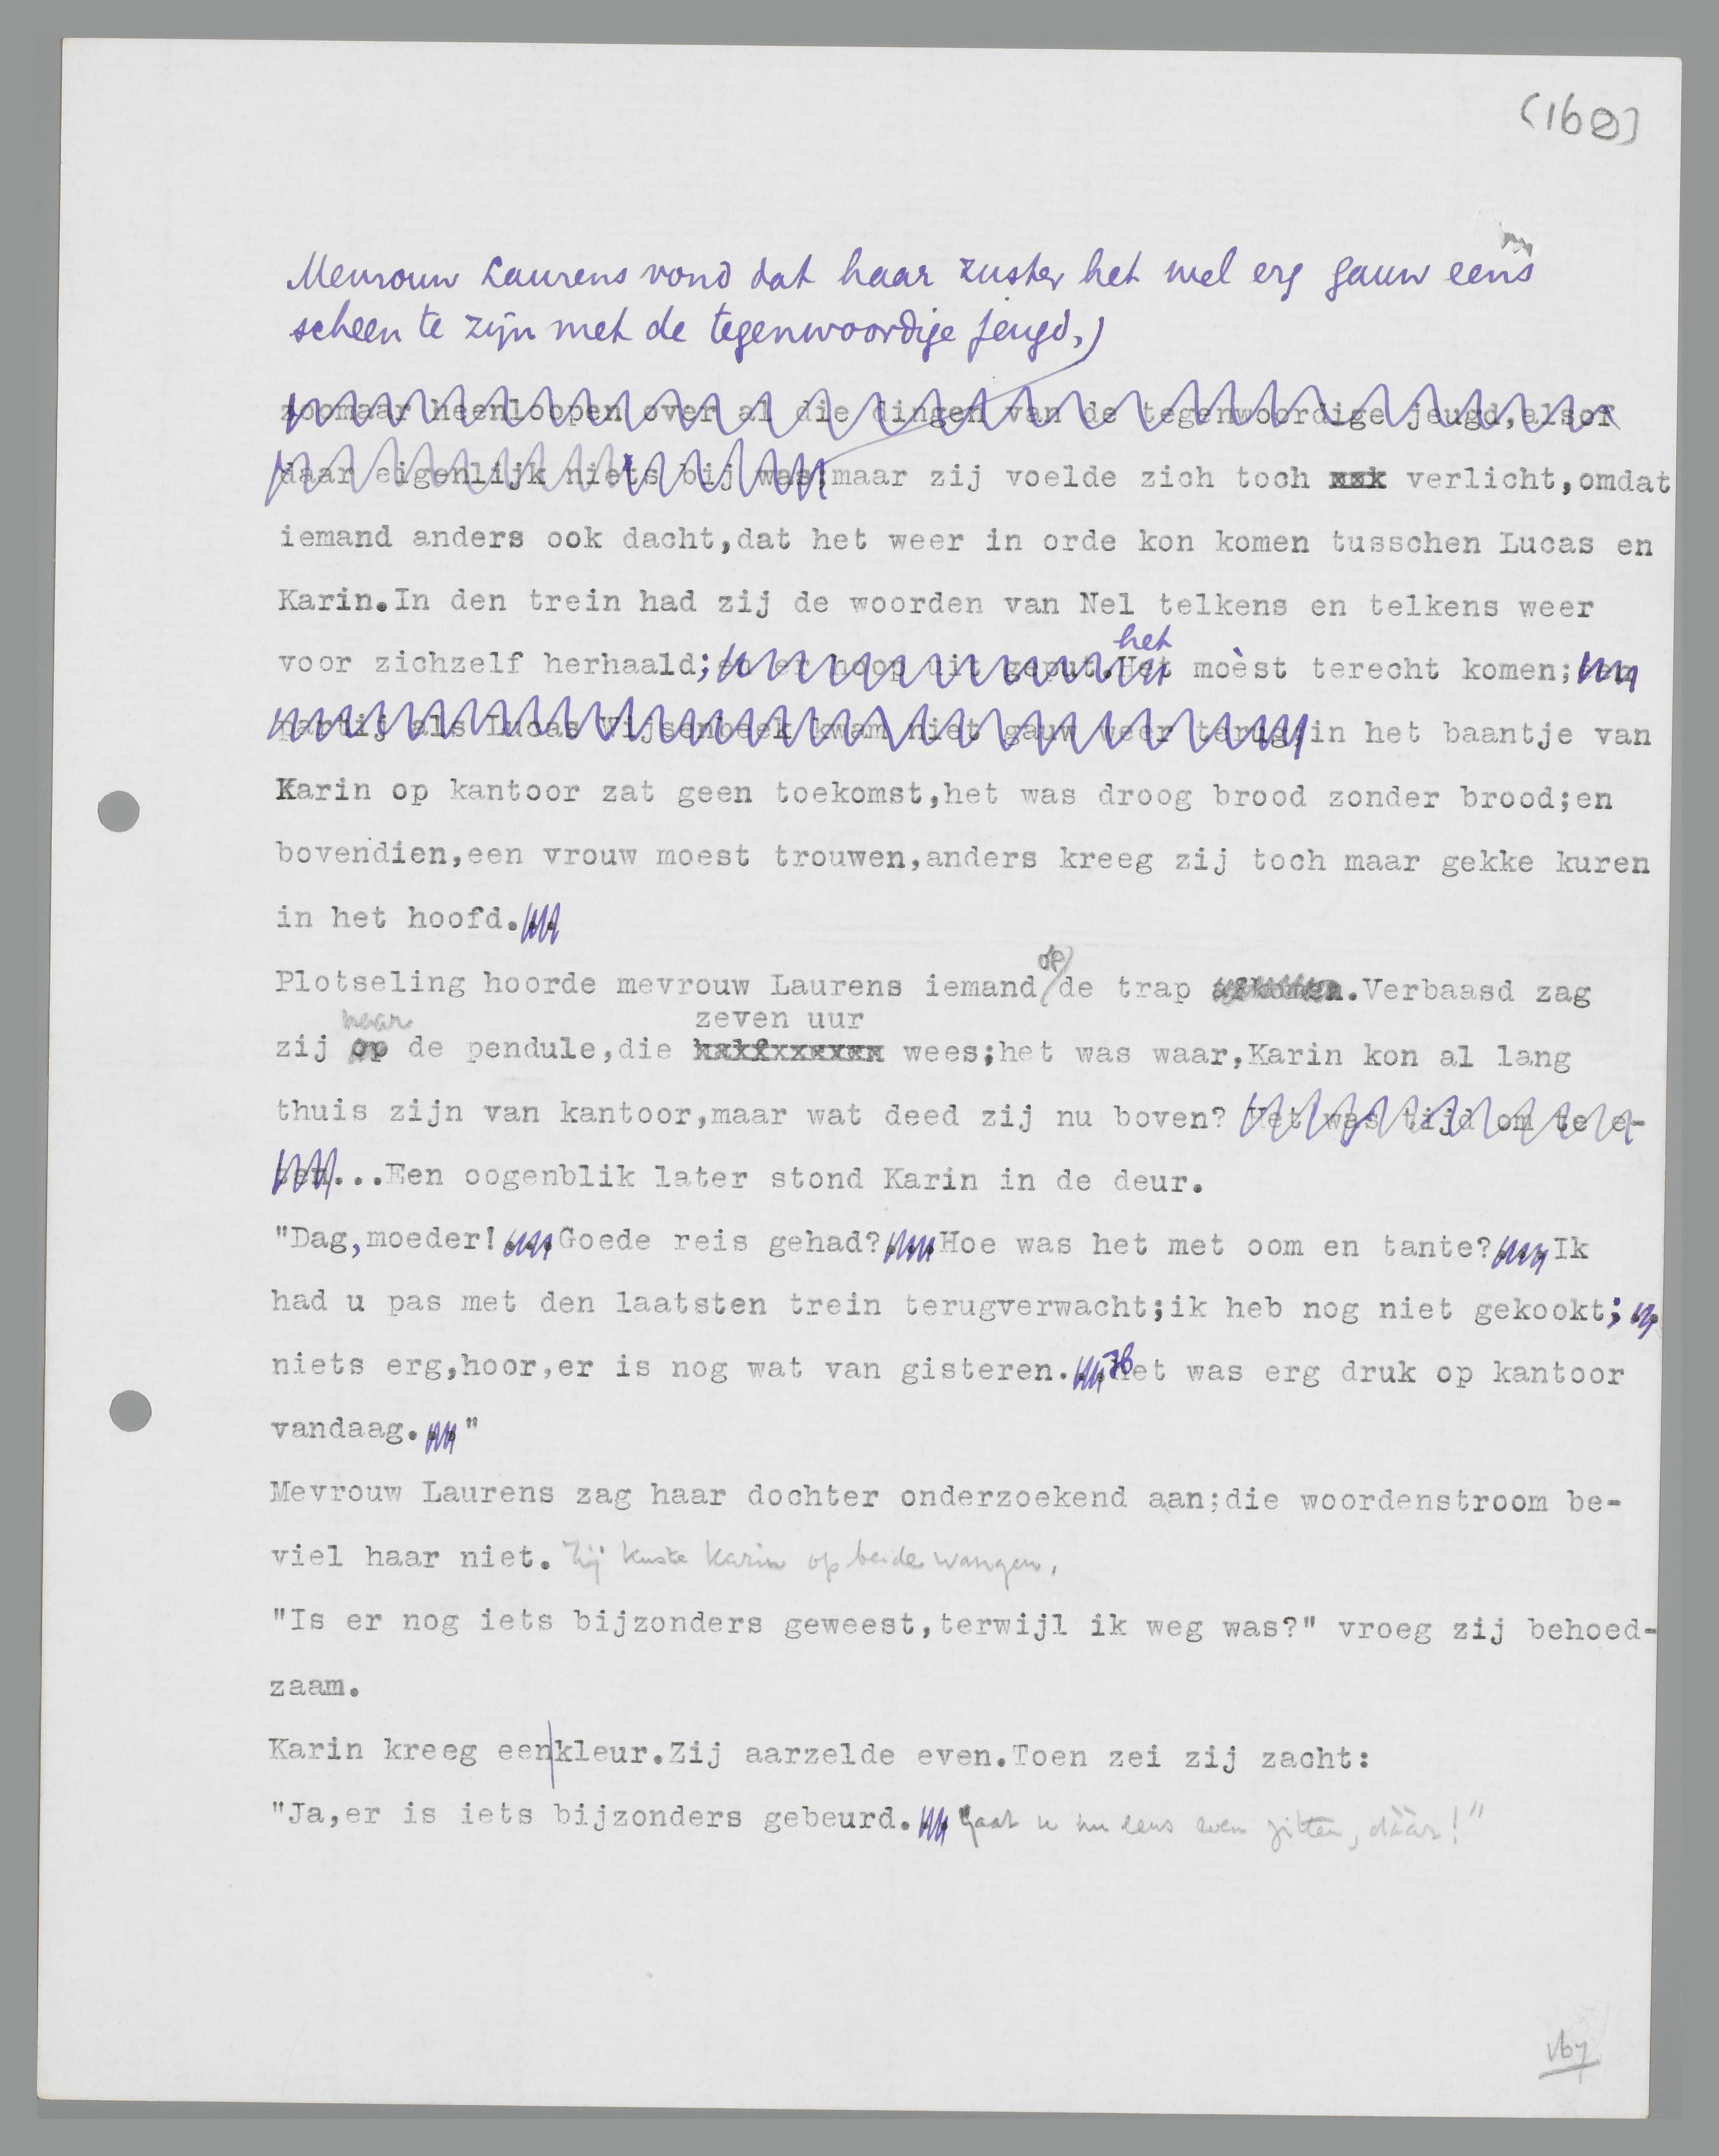 (160)
Mevrouw Laurens vond dat haar zuster het wel erg gauw eens
scheen te zijn met de tegenwoordige jeugd,)
zoomaar heenloopen over al die dingen van de tegenwoordige jeugd,alsof
daar eigenlijk niets bij was;maar zij voelde zich toch xxk verlicht,omdat
iemand anders ook dacht,dat het weer in orde kon komen tusschen Lucas en
Karin.In den trein had zij de woorden van Nel telkens en telkens weer
het
voor zichzelf herhaald;en er hoop uit geput.Het moèst terecht komen;een
partij als Lucas Wijsenbeek kwam niet gauw weer terug;in het baantje van
Karin op kantoor zat geen toekomst,het was droog brood zonder brood;en
bovendien,een vrouw moest trouwen,anders kreeg zij toch maar gekke kuren
in het hoofd...
op
Plotseling hoorde mevrouw Laurens iemand de trap afkomen.Verbaasd zag
naar zeven uur
zij op de pendule,die wees;het was waar,Karin kon al lang
thuis zijn van kantoor,maar wat deed zij nu boven? Het was tijd om te e-
ten...Een oogenblik later stond Karin in de deur.
"Dag,moeder!...Goede reis gehad?...Hoe was het met oom en tante?...Ik
had u pas met den laatsten trein terugverwacht;ik heb nog niet gekookt;..
niets erg,hoor,er is nog wat van gisteren...Het was erg druk op kantoor
vandaag..."
Mevrouw Laurens zag haar dochter onderzoekend aan;die woordenstroom be-
viel haar niet. Zij kuste Karin op beide wangen.
"Is er nog iets bijzonders geweest,terwijl ik weg was?" vroeg zij behoed-
zaam.
Karin kreeg een|kleur.Zij aarzelde even.Toen zei zij zacht:
"Ja,er is iets bijzonders gebeurd..." Gaat u nu eens even zitten, dáár!"
167